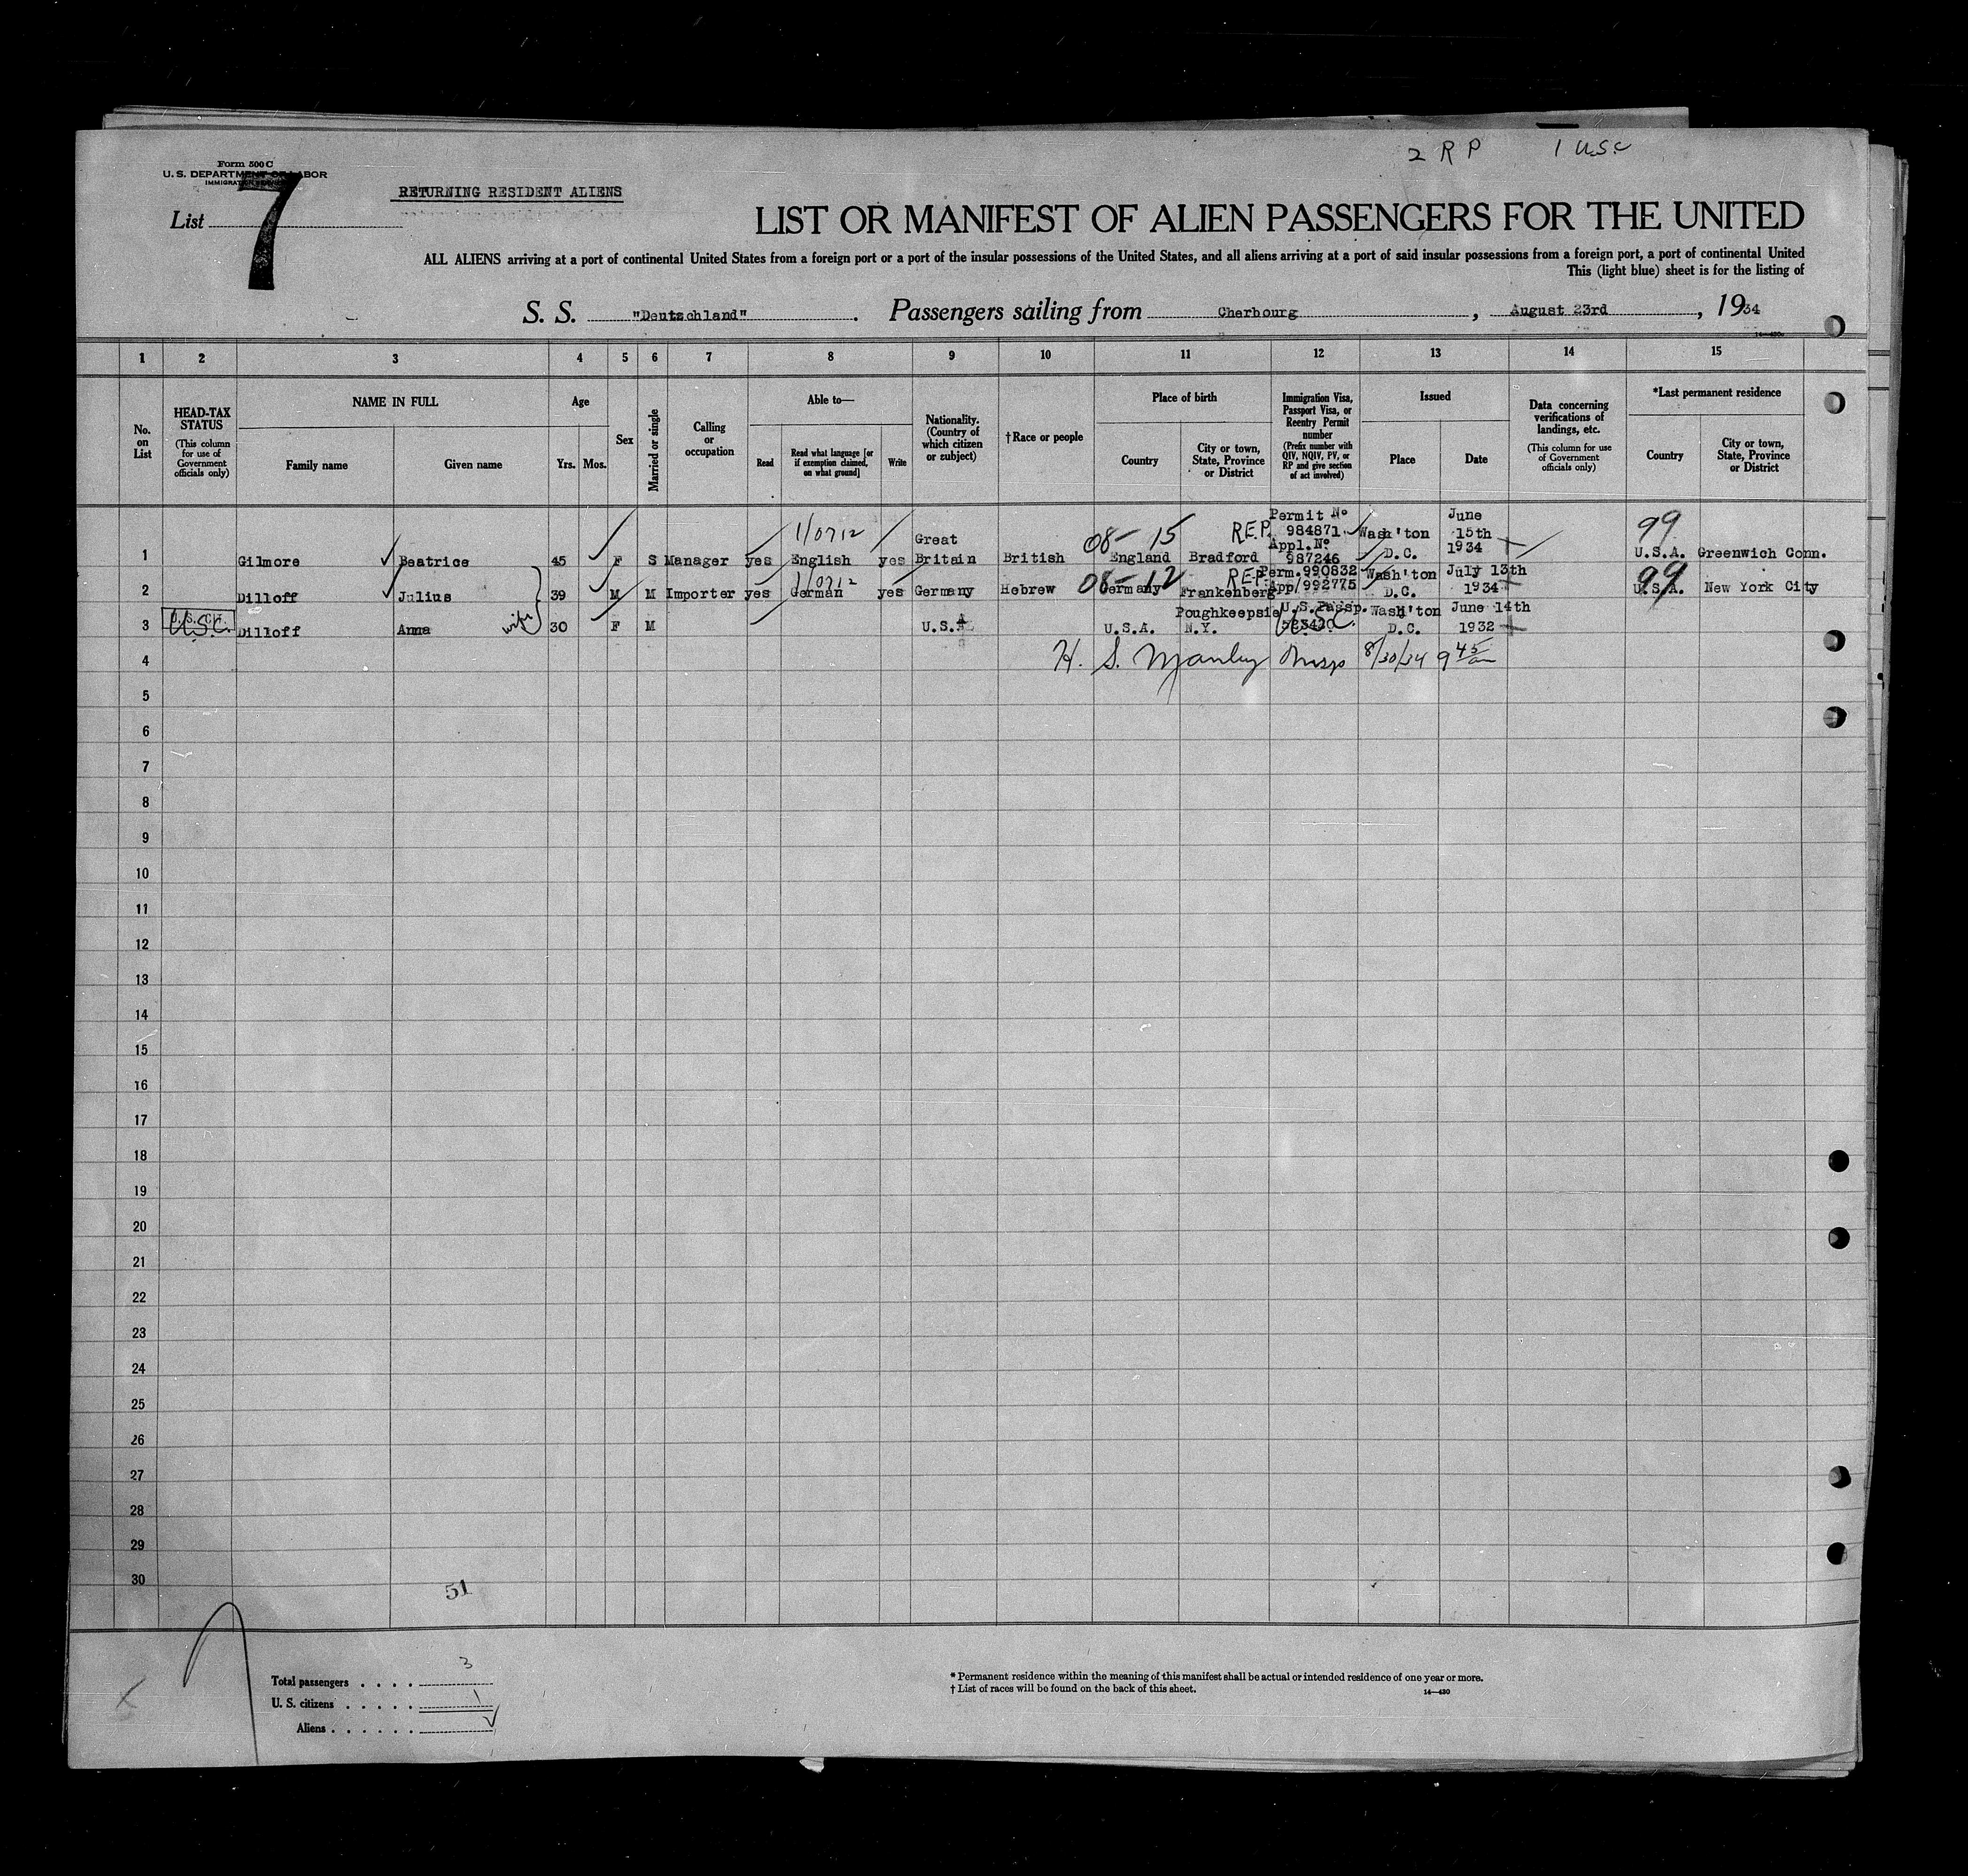 2 R P 1 U.S.C
Form 500 C
U. S. DEPARTMENT OF LABOR
IMMIGRATION SERVICE
7
RETURNING RESIDENT ALIENS
List
LIST OR MANIFEST OF ALIEN PASSENGERS FOR THE UNITED
ALL ALIENS arriving at a port of continental United States from a foreign port or a port of the insular possessions of the United States, and all aliens arriving at a port of said insular possessions from a foreign port, a port of continental United
This (light blue) sheet is for the listing of
S. S. "Deutschland". Passengers sailing from Cherbourg, August 23rd, 1934
14—430
1 2 3 4 5 6 7 8 9 10 11 12 13 14 15
No. on List
HEAD-TAX STATUS
(This column for use of Government officials only)
NAME IN FULL
Family name
Given name
Age
Yrs. Mos.
Sex
Married or single
Calling or occupation
Able to—
Read
Read what language [or if exemption claimed, on what ground]
Write
Nationality. (Country of which citizen or subject)
†Race or people
Place of birth
Country
City or town, State, Province or District
Immigration Visa, Passport Visa, or Reentry Permit number
(Prefix number with QIV, NQIV, PV, or RP and give section of act involved)
Issued
Place
Date
Data concerning verifications of landings, etc.
(This column for use of Government officials only)
*Last permanent residence
Country
City or town, State, Province or District
1 Gilmore Beatrice 45 F S Manager yes English yes Great Britain British 08-15 England Bradford R.E.P. Permit No 984871 Appl.No 987246 Wash'ton D.C. June 15th 1934 99 U.S.A. Greenwich Conn.
2 Dilloff Julius 39 M M Importer yes German yes Germany Hebrew 08-12 Germany Frankenberg R.E.P. Perm.990832 App/992775 Wash'ton D.C. July 13th 1934 99 U.S.A. New York City
3 U.S.C. Dilloff Anna wife 30 F M U.S.A. U.S.A. Poughkeepsie N.Y. U.S.Passp. U.S.C. Wash'ton D.C. June 14th 1932
4 H. S. Manley Insp 8/30/34 9 45 am
5
6
7
8
9
10
11
12
13
14
15
16
17
18
19
20
21
22
23
24
25
26
27
28
29
30
51
Total passengers . . . . 3
U. S. citizens . . . . . 1
Aliens . . . . . .
* Permanent residence within the meaning of this manifest shall be actual or intended residence of one year or more.
† List of races will be found on the back of this sheet.
14—430